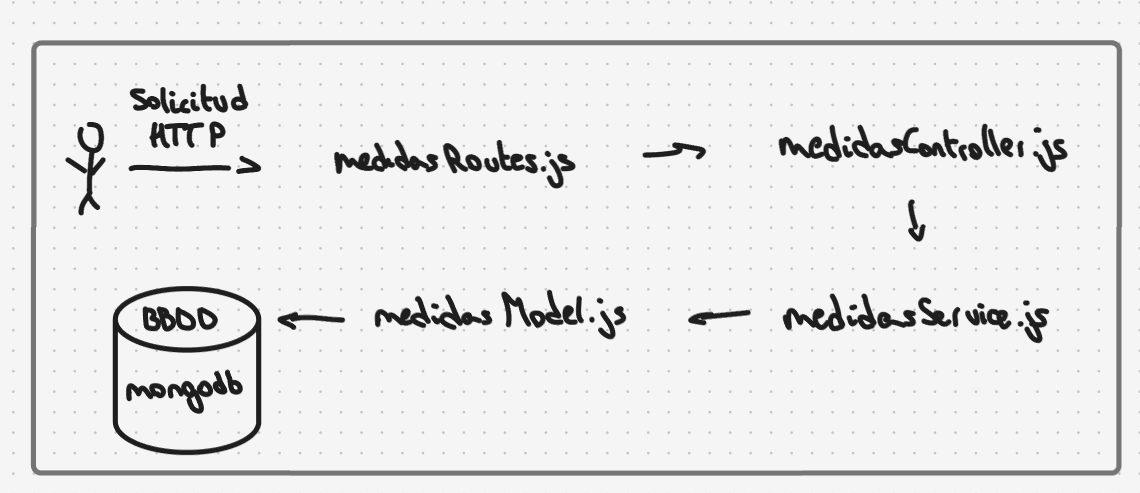 Solicitud
HTTP
medidasRoutes.js
medidasController.js
medidasService.js
medidasModel.js
BBDD
mongodb